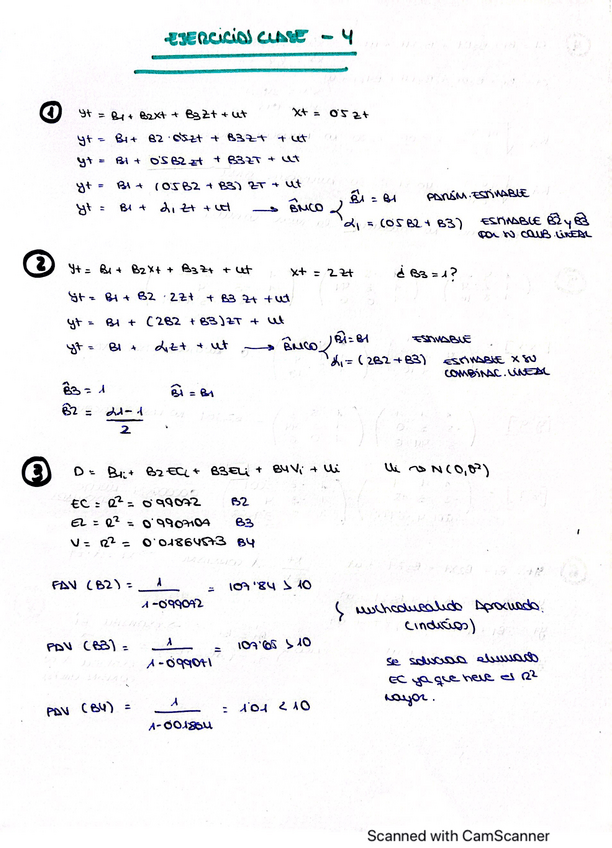 EJERCICIOS CLASE - 4
① yt = B1 + B2xt + B3Zt + ut xt = 0'5 zt
yt = B1 + B2·0'5zt + B3Zt + ut
yt = B1 + 0'5B2zt + B3ZT + ut
yt = B1 + (0'5B2 + B3) ZT + ut
yt = B1 + α1 Zt + ut → B̂MCO B̂1 = B1 PARÁM. ESTIMABLE
α1 = (0'5B2 + B3) ESTIMABLE B̂2 y B̂3
POR SU COMB. LINEAL
② yt = B1 + B2xt + B3Zt + ut xt = 2zt ¿B3 = 1?
yt = B1 + B2·2Zt + B3 Zt + ut
yt = B1 + (2B2 + B3)ZT + ut
yt = B1 + α1zt + ut → B̂MCO B̂1 = B1 ESTIMABLE
α1 = (2B2 + B3) ESTIMABLE X SU
COMBINAC. LINEAL
B̂3 = 1 B̂1 = B1
B̂2 = α1 - 1
2
③ D = B1i + B2ECi + B3ELi + B4Vi + Ui Ui ~> N(0,σ²)
EC = R² = 0'99072 B2
EL = R² = 0'9907104 B3
V = R² = 0'01864573 B4
FAV (B2) = 1 = 107'84 > 10
1 - 0'99072
} Multicolinealidad Aproximada.
(indicios)
FAV (B3) = 1 = 107'65 > 10
1 - 0'99071
se soluciona eliminando
EC ya que tiene el R²
mayor.
FAV (B4) = 1 = 1'01 < 10
1 - 0'01864
Scanned with CamScanner